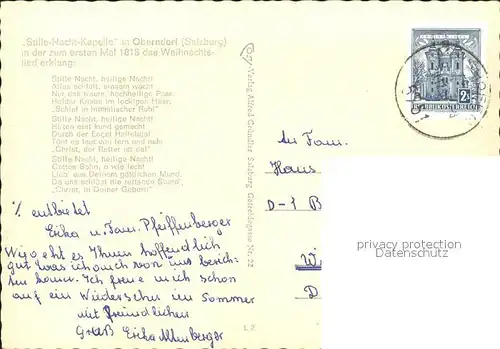 „Stille-Nacht-Kapelle" in Oberndorf (Salzburg)
in der zum ersten Mal 1818 das Weihnachts-
lied erklang:
Stille Nacht, heilige Nacht!
Alles schläft, einsam wacht
Nur das traute, hochheilige Paar.
Holder Knabe im lockigen Haar,
„Schlaf in himmlischer Ruh!"
Stille Nacht, heilige Nacht!
Hirten erst kund gemacht
Durch der Engel Halleluja!
Tönt es laut von fern und nah:
„Christ, der Retter ist da!"
Stille Nacht, heilige Nacht!
Gottes Sohn, o wie lacht
Lieb' aus Deinem göttlichen Mund,
Da uns schlägt die rettende Stund',
„Christ, in Deiner Geburt!"
Cosy-Verlag Alfred Gründler, Salzburg, Getreidegasse Nr. 22
REPUBLIK ÖSTERREICH
An Fam.
Hans
D-1 B
W
D
privacy protection
Datenschutz
entbietet
Erika u. Fam. Pfeiffenberger
Wie geht es Ihnen hoffentlich
gut was ich auch von uns berich-
ten kann. Ich freue mich schon
auf ein Wiedersehn im Sommer
mit freundlichen
Gruß Erika
L 2